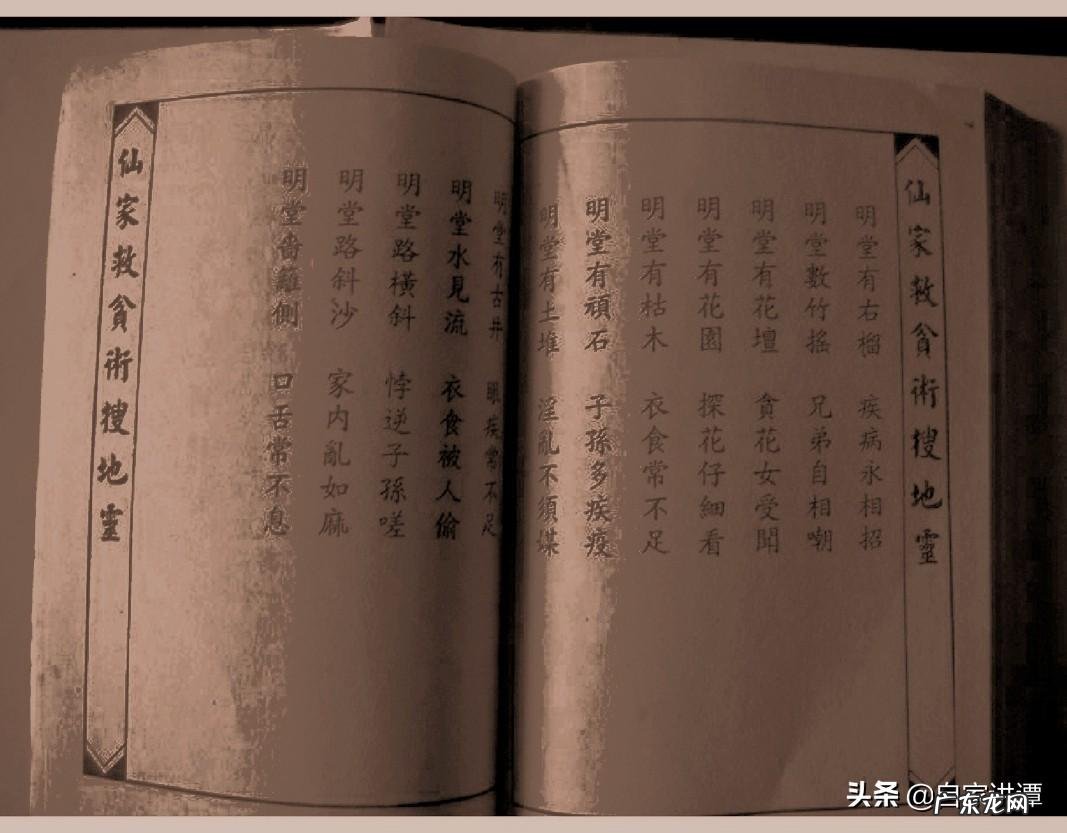 仙家救貧術搜地靈
明堂有右榴 疾病永相招
明堂數竹搖 兄弟自相嘲
明堂有花壇 貪花女受聞
明堂有花園 探花仔細看
明堂有枯木 衣食常不足
明堂有頑石 子孫多疾疫
明堂有土堆 淫亂不須媒
明堂有古井 眼疾常不足
明堂水見流 衣食被人偷
明堂路橫斜 悖逆子孫嗟
明堂路斜沙 家內亂如麻
明堂嗇籬側 口舌常不息
仙家救貧術搜地靈
头条 @白家进谭
广东龙网